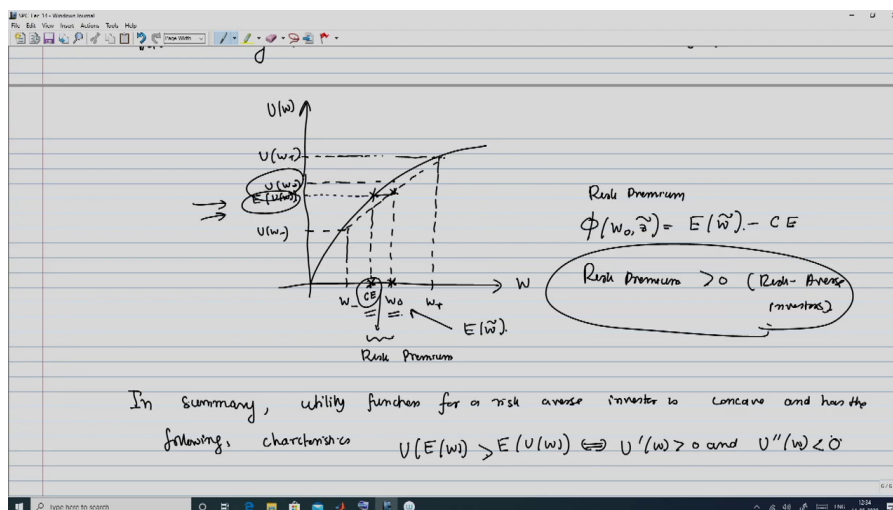 SPC Lec 14 - Windows Journal
File Edit View Insert Actions Tools Help
Page Width
U(W)
U(W+)
U(W0)
E(U(W))
U(W-)
W- CE W0 W+ W
E(W̃).
Risk Premium
Risk Premium
ϕ(W0, z̃) = E(W̃). - CE
Risk Premium >0 (Risk-Averse
investors)
In summary, utility function for a risk averse investor is concave and has the
following, charcteristics U(E(W)) > E(U(W)) ⟺ U'(W) > 0 and U''(W) < 0
6/6
Type here to search
ENG
12:34